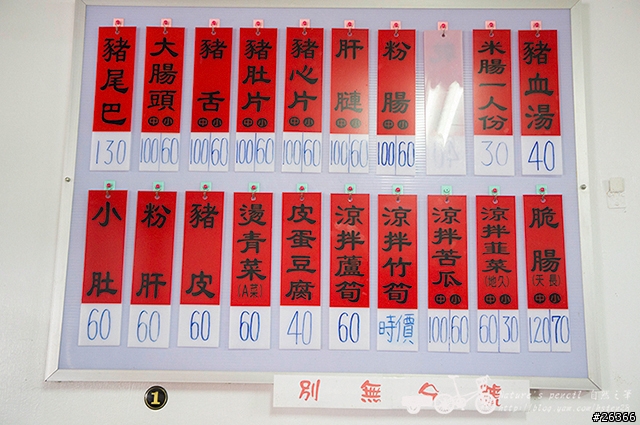 豬尾巴 130
大腸頭 中 小 100 60
豬舌 中 小 100 60
豬肚片 中 小 100 60
豬心片 中 小 100 60
肝膇 中 小 100 60
粉腸 中 小 100 60
米腸一人份 30
豬血湯 40
小肚 60
粉肝 60
豬皮 60
燙青菜(A菜) 60
皮蛋豆腐 40
涼拌蘆筍 60
涼拌竹筍 時價
涼拌苦瓜 中 小 100 60
涼拌韭菜(地久) 中 小 60 30
脆腸(天長) 中 小 120 70
1
別無分號
nature's pencil 自然之筆
#26366